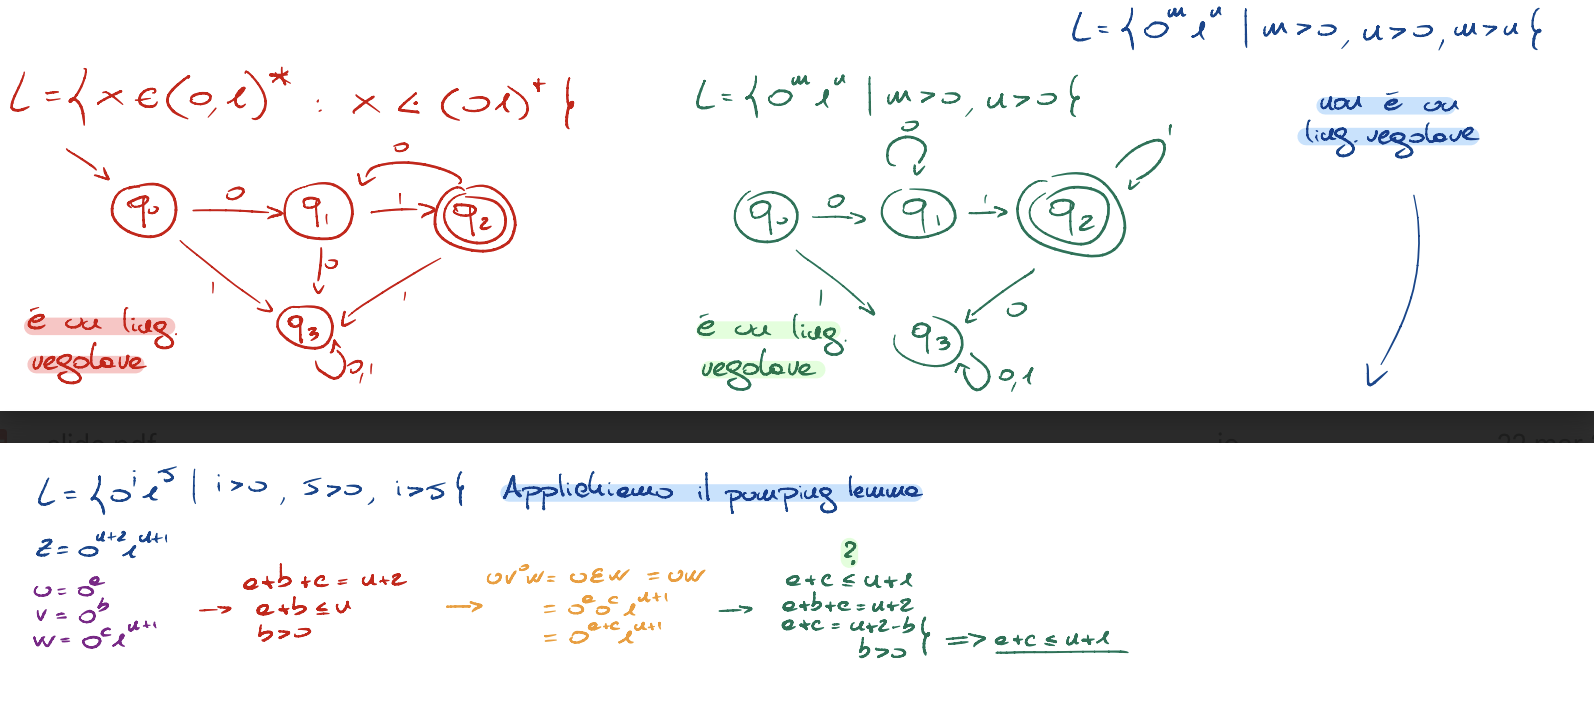 L = {0^m 1^n | m>0, n>0, m>n}
L = {x ∈ (0,1)^* : x ∈ (01)^+}
L = {0^m 1^n | m>0, n>0}
non è un
ling. regolare
0
0
1
q0
0
q1
1
q2
q0
0
q1
1
q2
0
1
1
1
0
q3
0,1
q3
0,1
è un ling.
regolare
è un ling.
regolare
slide.pdf
L = {0^i 1^j | i>0, j>0, i>j} Applichiamo il pumping lemma
z = 0^{n+2} 1^{n+1}
u = 0^a
v = 0^b
w = 0^c 1^{n+1}
→ a+b+c = n+2
a+b ≤ n
b>0
→ uv^0w = uεw = uw
= 0^a 0^c 1^{n+1}
= 0^{a+c} 1^{n+1}
?
→ a+c ≤ n+1
a+b+c = n+2
a+c = n+2-b
b>0
} => a+c ≤ n+1